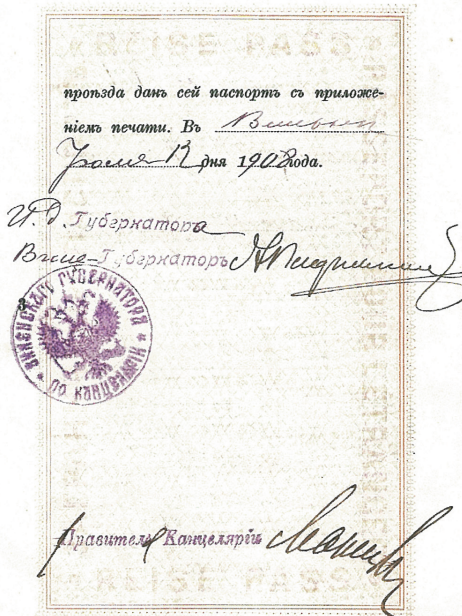 проѣзда данъ сей паспортъ съ приложе-
ніемъ печати. Въ Вильнѣ
Іюля 12 дня 1902 года.
И. д. Губернатора
Вице-Губернаторъ
ВИЛЕНСКАГО ГУБЕРНАТОРА
Правитель Канцеляріи